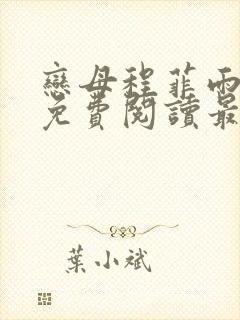 戀母程菲雨
免費閱讀最
葉小斌